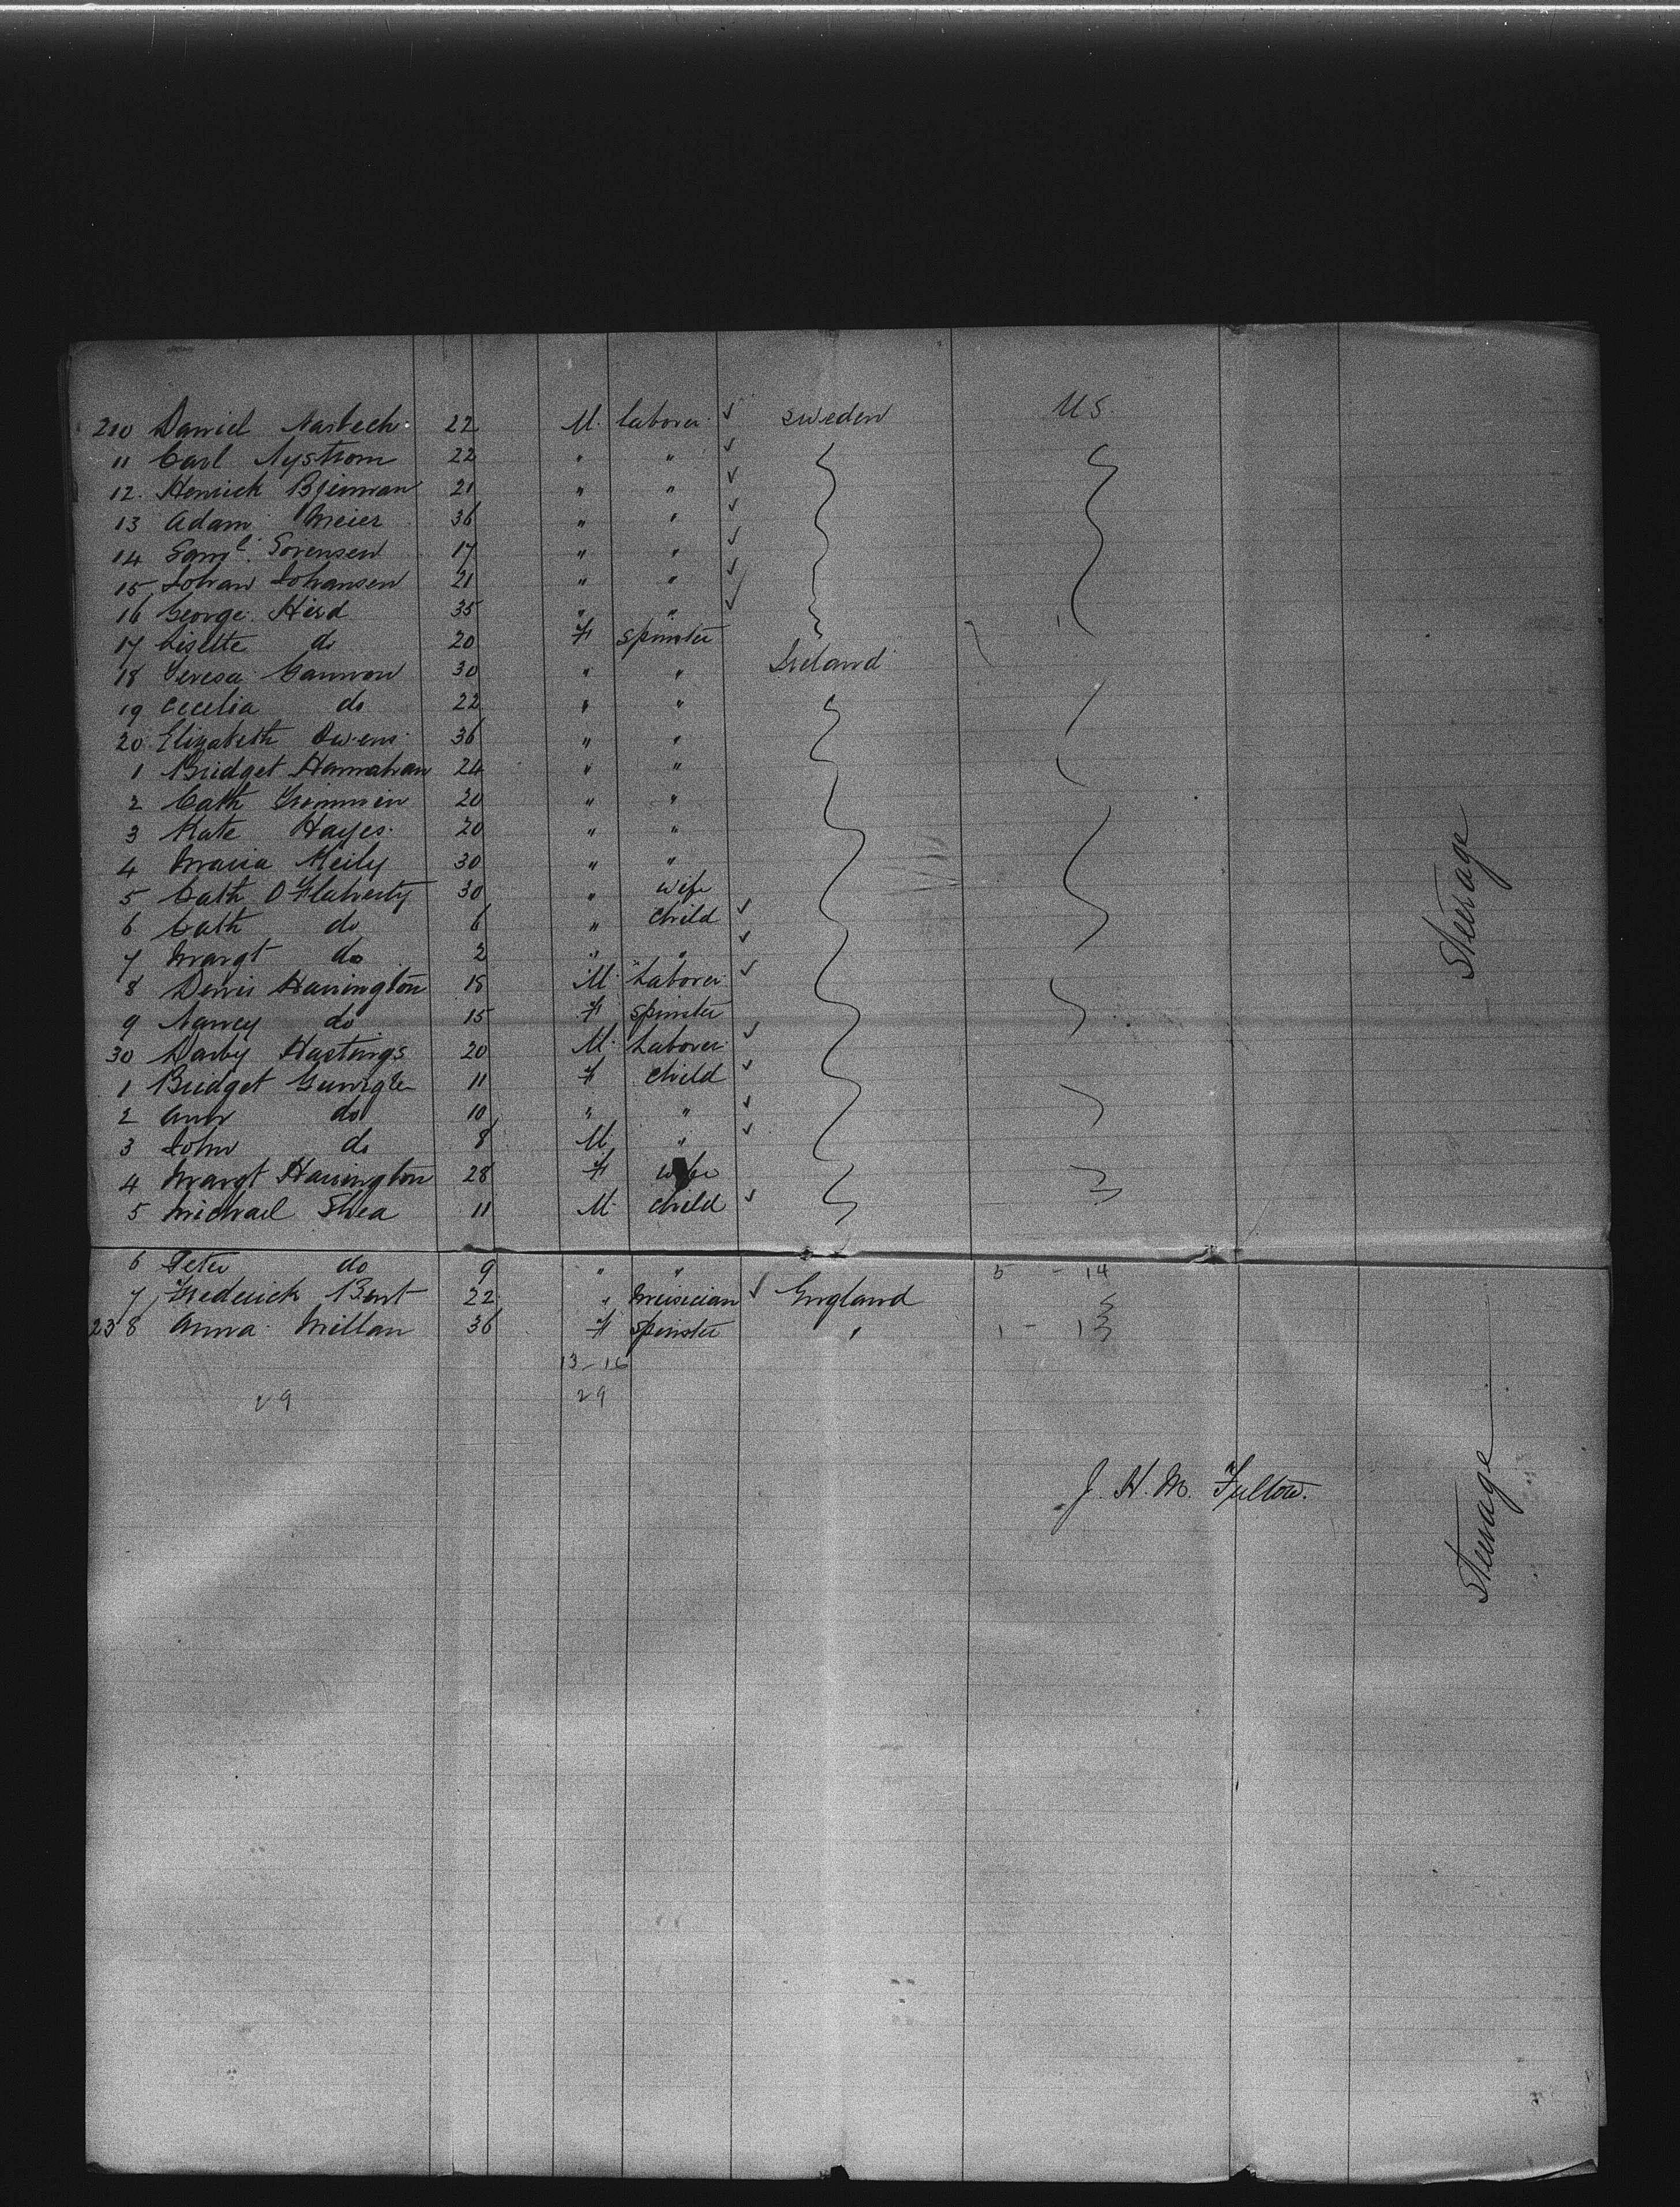 210 Daniel Nasbech 22 M. laborer ✓ Sweden U S.
11 Carl Nystrom 22 " " ✓
12. Henrick Bjerman 21 " " ✓
13 Adam Meier 36 " " ✓
14 Saml. Sorensen 17 " " ✓
15 Johan Johansen 21 " " ✓
16 George Hird 35 " " ✓
17 Lisette do 20 F spinster
18 Teresa Cannon 30 " " Ireland
19 Cecelia do 22 " "
20 Elizabeth Owens 36 " "
1 Bridget Hannahan 24 " "
2 Cath 20 " "
3 Kate Hayes. 20 " "
4 Maria Keily 30 " "
5 Cath O'Flaherty 30 " wife
6 Cath do 6 " child ✓
7 Margt do 2 " " ✓
8 Denis Harrington 18 M. Laborer ✓
9 Nancy do 15 F spinster
30 Darby Hastings 20 M. Laborer ✓
1 Bridget 11 F child ✓
2 Ann do 10 " " ✓
3 John do 8 M " ✓
4 Margt Harrington 28 F wife
5 Michael Shea 11 M. child ✓
Steerage
6 Peter do 9 " " 5 - 14
7 Frederick Bent 22 " Musician ✓ England
238 Anna Millan 36 F spinster " 1 - 13
13-16
29 29
J. H. M. Fulton.
Steerage